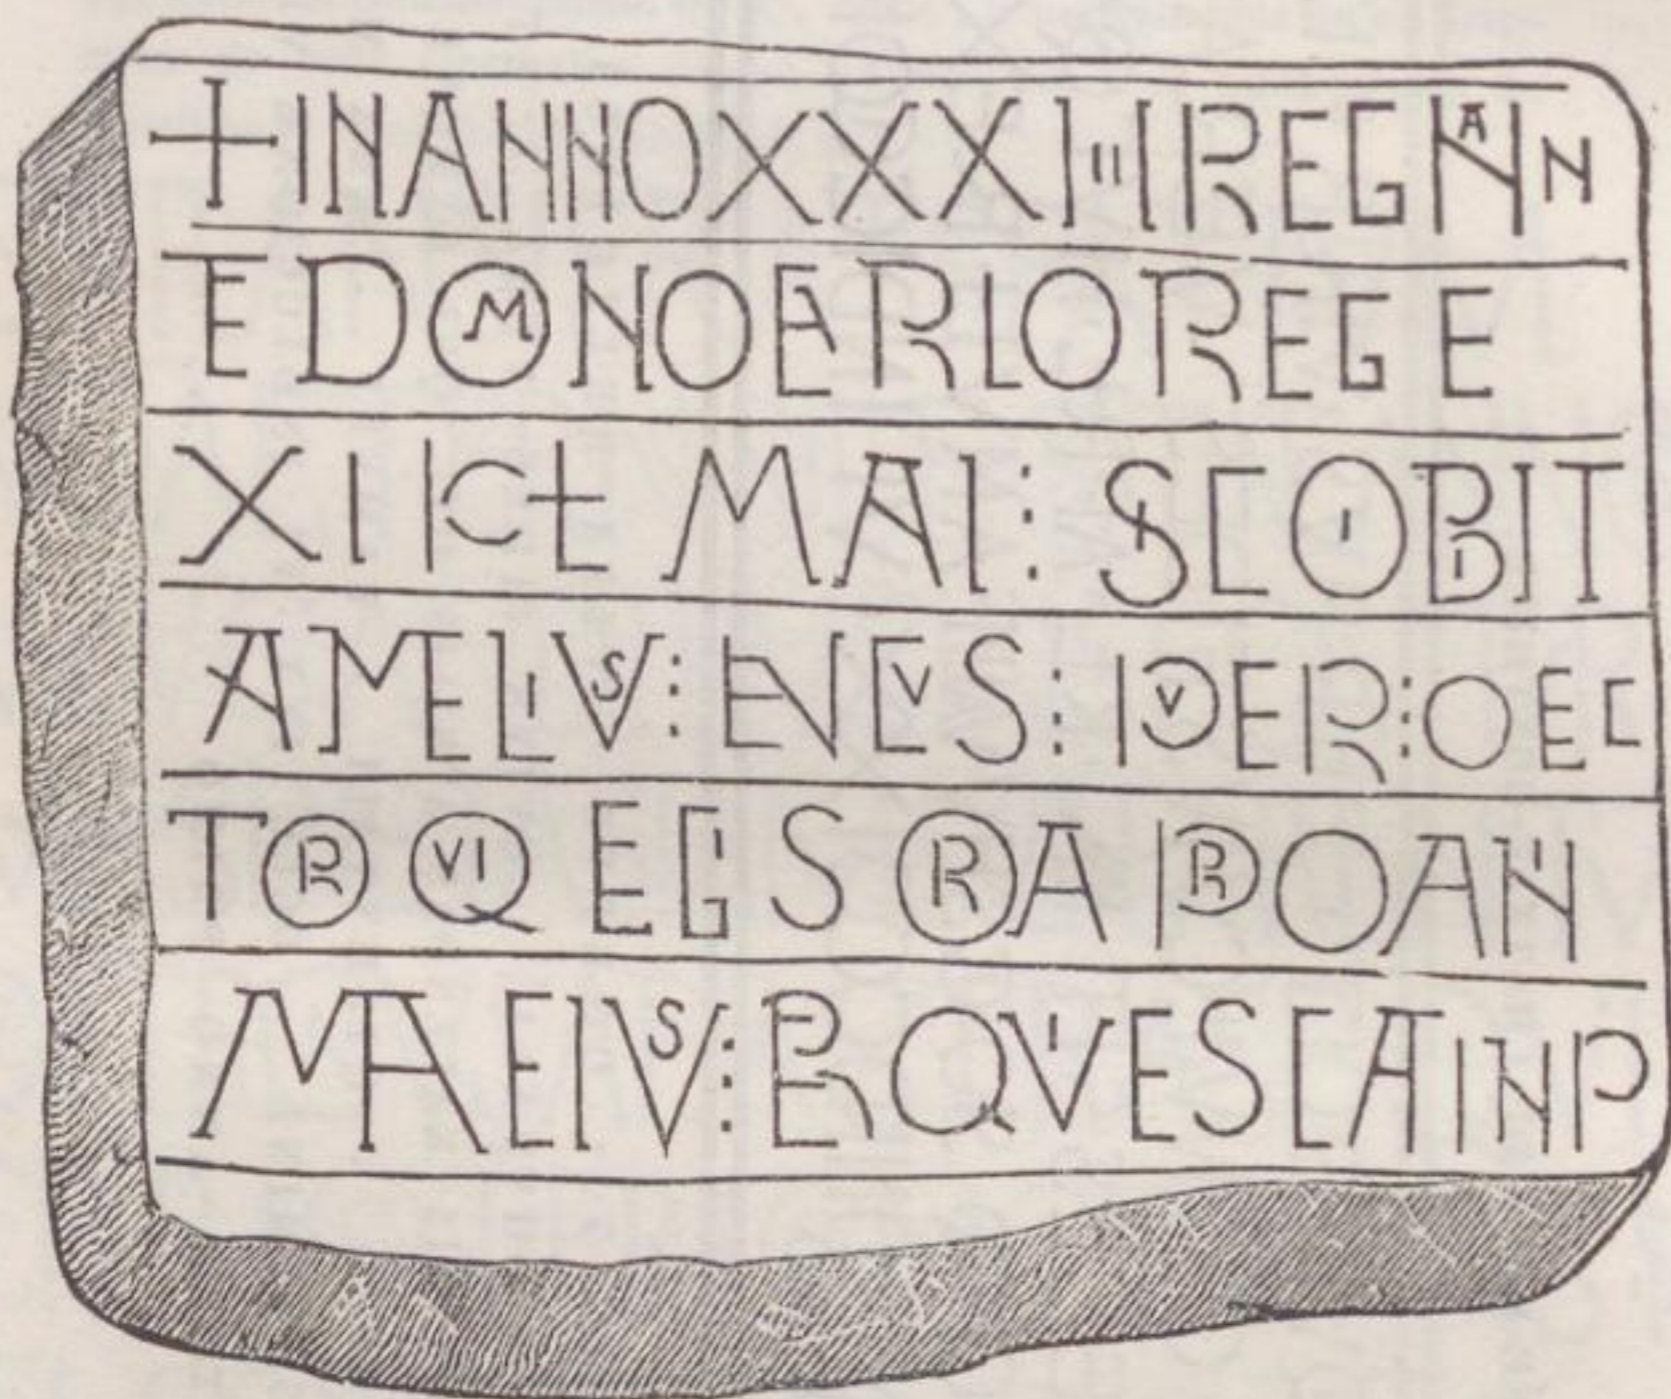 + IN ANNO XXXIIII REGNAN
TE DOMNO CARLO REGE
XI KL MAI : SIC OBIIT
AMELIVS : ENEVS : PVER : O LEC
TOR QVI LEGIS ORA PRO ANI
MA EIVS : ET REQVIESCAT IN P